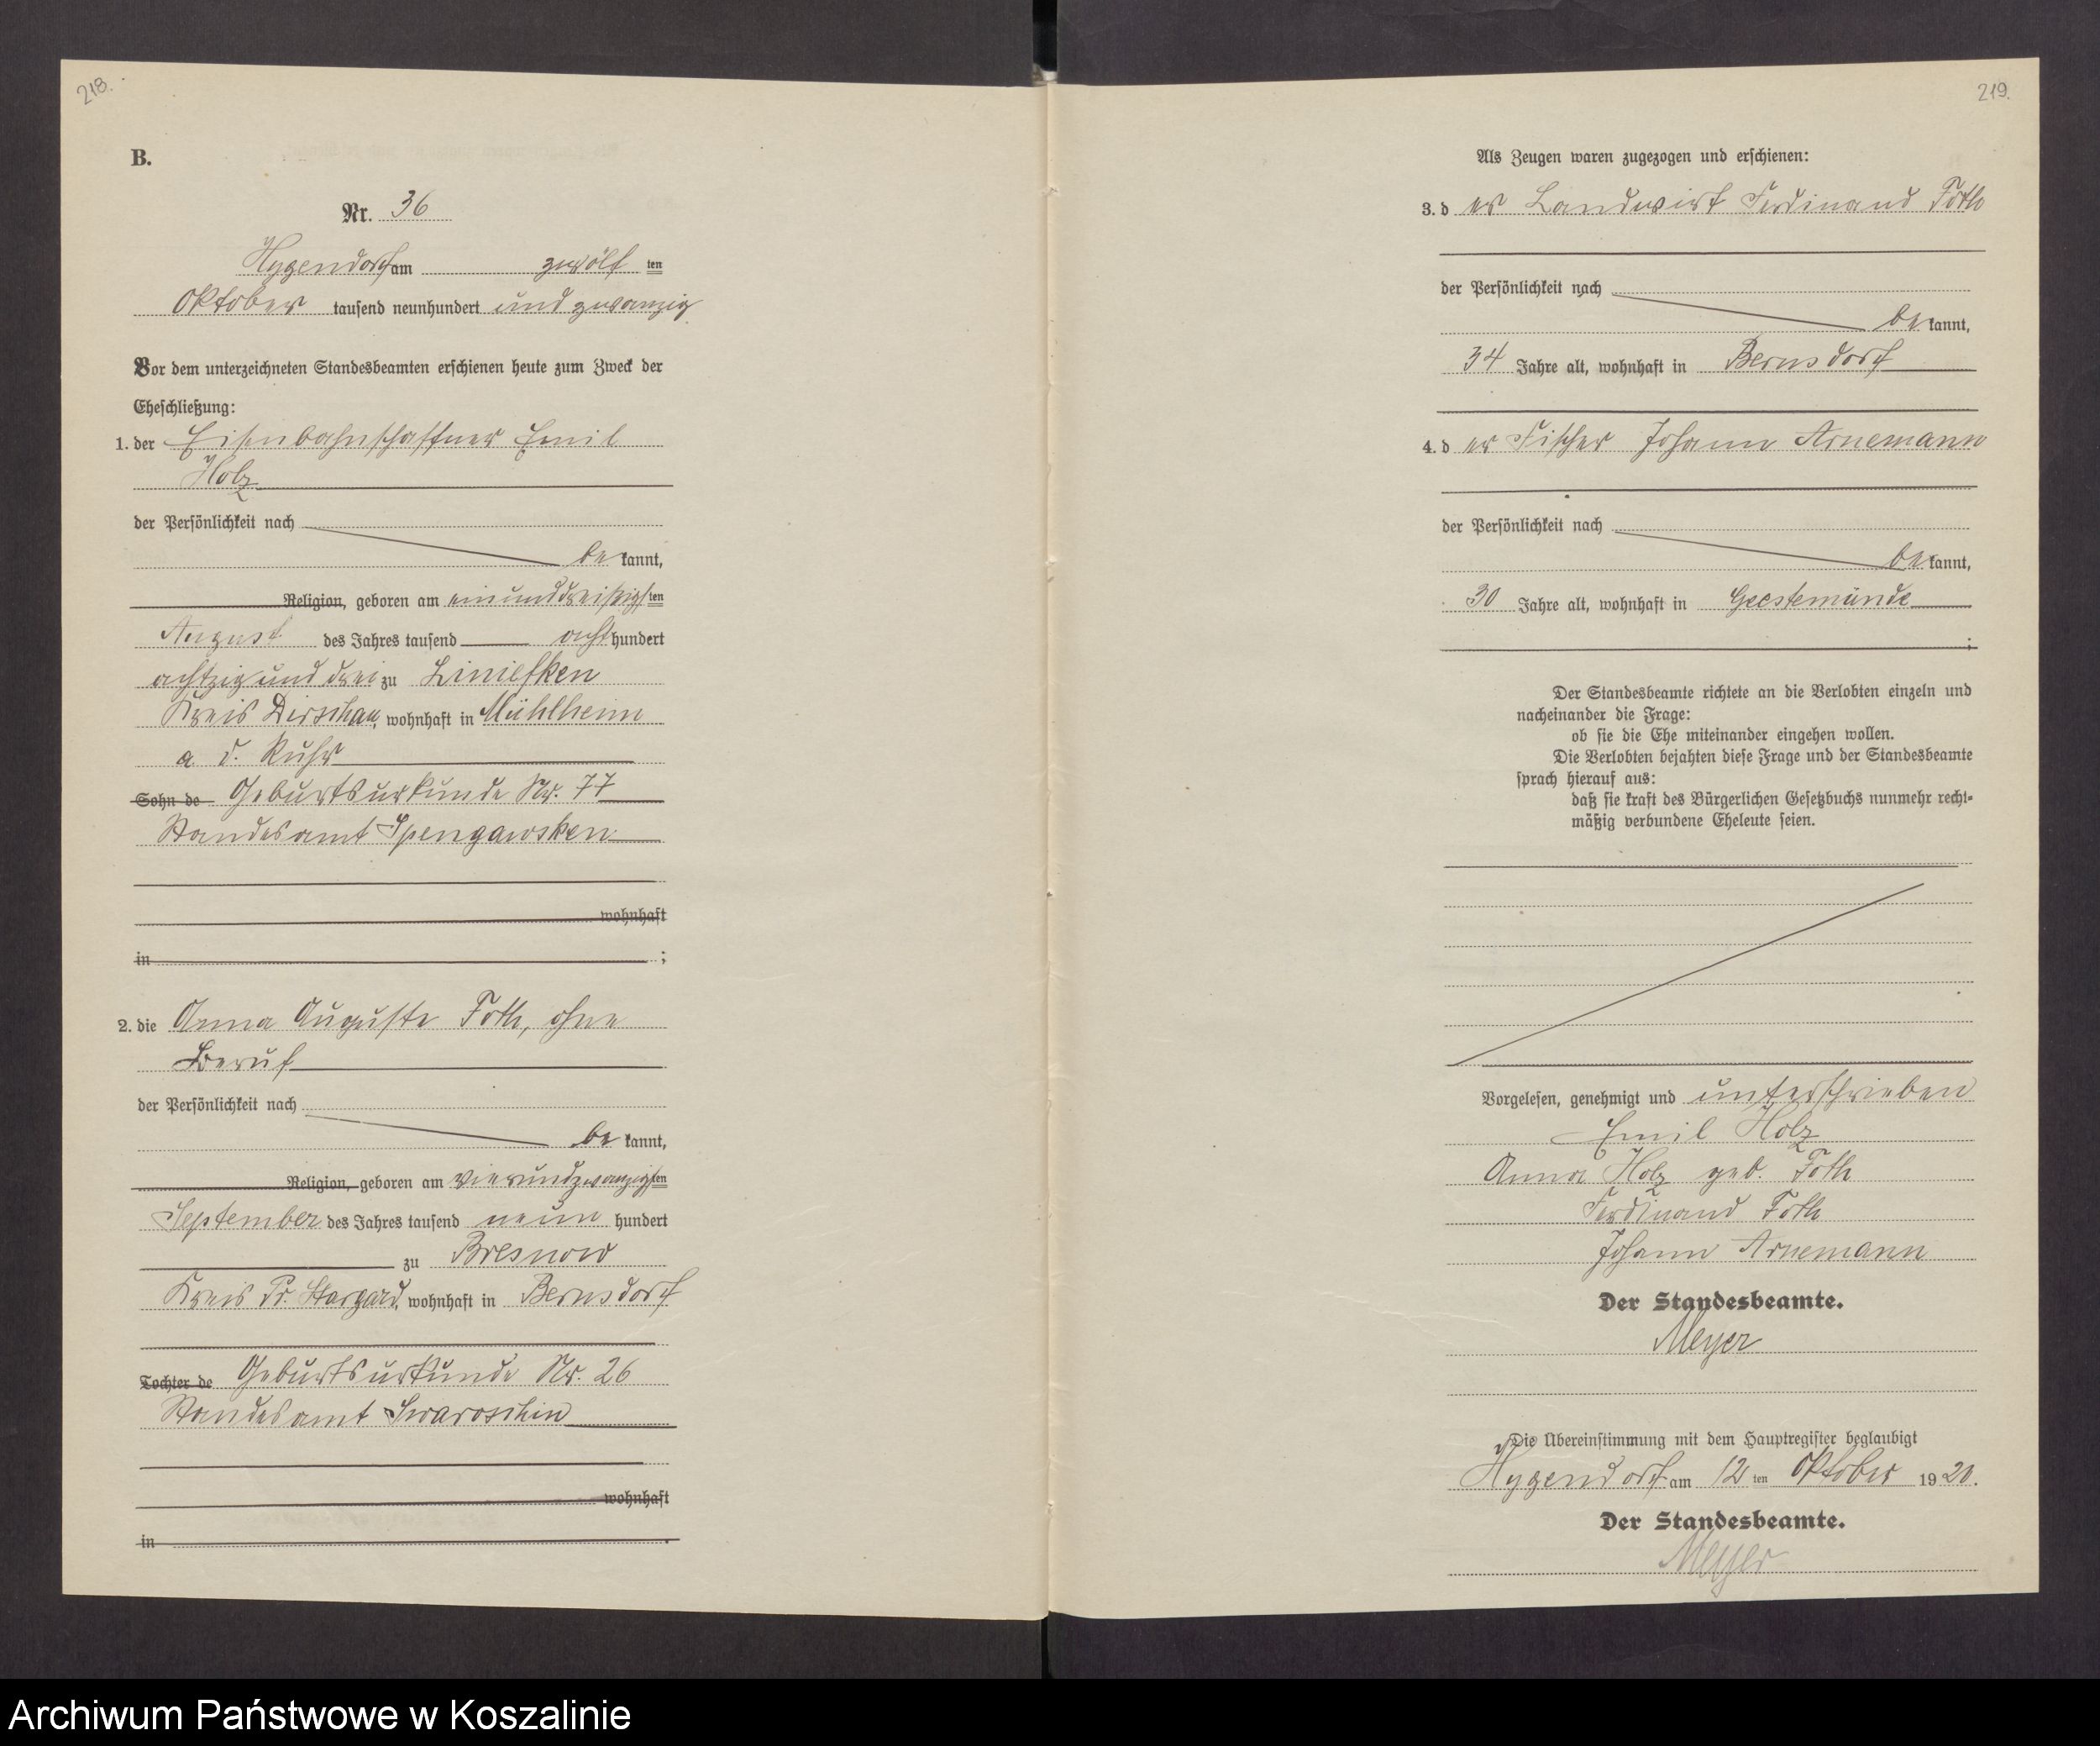 218.
B.
Nr. 36
Hygendorf am zwölf ten
Oktober tausend neunhundert und zwanzig
Vor dem unterzeichneten Standesbeamten erschienen heute zum Zweck der
Eheschließung:
1. der Eisenbahnschaffner Emil
Holz
der Persönlichkeit nach
be kannt,
Religion, geboren am einunddreißigsten
August des Jahres tausend acht hundert
achtzig und drei zu Liniefken
Kreis Dirschau, wohnhaft in Mühlheim
a d. Ruhr
Sohn de Geburtsurkunde Nr. 77
Standesamt Spengawsken
wohnhaft
in ;
2. die Anna Auguste Foth, ohne
Beruf
der Persönlichkeit nach
be kannt,
Religion, geboren am vierundzwanzigsten
September des Jahres tausend neun hundert
zu Bresnow
Kreis Pr. Stargard, wohnhaft in Bernsdorf
Tochter de Geburtsurkunde Nr. 26
Standesamt Swaroschin
wohnhaft
in
219.
Als Zeugen waren zugezogen und erschienen:
3. d er Landwirt Ferdinand Foth
der Persönlichkeit nach
be kannt,
34 Jahre alt, wohnhaft in Bernsdorf
4. d er Fischer Johann Arnemann
der Persönlichkeit nach
be kannt,
30 Jahre alt, wohnhaft in Geestemünde
;
Der Standesbeamte richtete an die Verlobten einzeln und
nacheinander die Frage:
ob sie die Ehe miteinander eingehen wollen.
Die Verlobten bejahten diese Frage und der Standesbeamte
sprach hierauf aus:
daß sie kraft des Bürgerlichen Gesetzbuchs nunmehr recht-
mäßig verbundene Eheleute seien.
Vorgelesen, genehmigt und unterschrieben
Emil Holz
Anna Holz geb. Foth
Ferdinand Foth
Johann Arnemann
Der Standesbeamte.
Meyer
Die Übereinstimmung mit dem Hauptregister beglaubigt
Hygendorf am 12 ten Oktober 19 20.
Der Standesbeamte.
Meyer
Archiwum Państwowe w Koszalinie